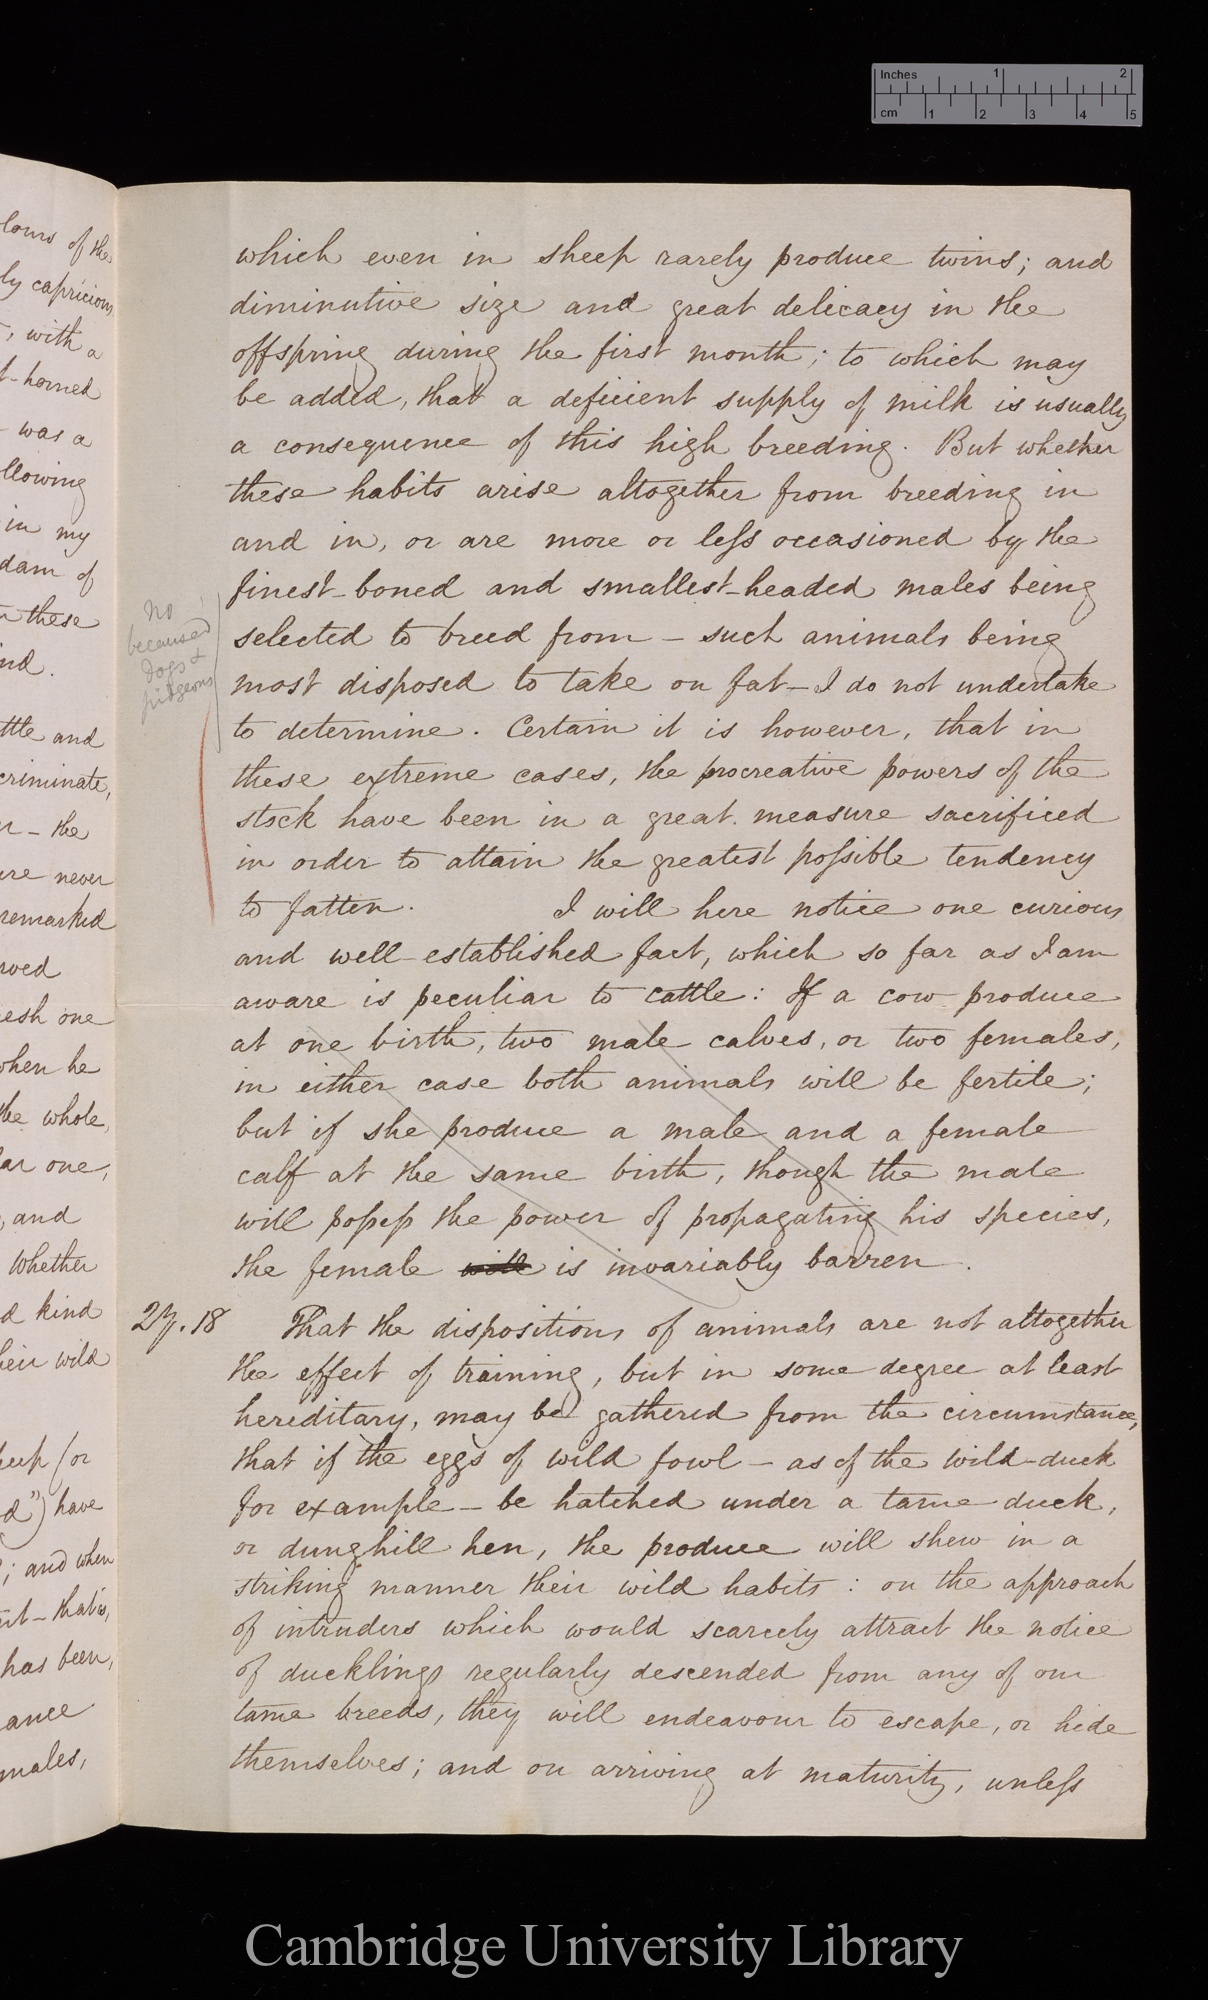 Inches 1 2
cm 1 2 3 4 5
lours of the
ly capricious
, with a
t-horned
- was a
llowing
in my
dam of
these
ind.
ttle and
criminate,
- the
ere never
remarked
rved
esh one
when he
the whole,
lar one,
, and
whether
d kind
heir wild
eep (or
d") have
; and when
it - that is,
has been,
ance
males,
which even in sheep rarely produce twins; and
diminutive size and great delicacy in the
offspring during the first month; to which may
be added, that a deficient supply of milk is usually
a consequence of this high breeding. But whether
these habits arise altogether from breeding in
and in, or are more or leſs occasioned by the
finest-boned and smallest-headed males being
selected to breed from – such animals being
most disposed to take on fat – I do not undertake
to determine. Certain it is however, that in
these extreme cases, the procreative powers of the
stock have been in a great measure sacrificed
in order to attain the greatest poſsible tendency
to fatten. I will here notice one curious
and well-established fact, which so far as I am
aware is peculiar to cattle: If a cow produce
at one birth, two male calves, or two females,
in either case both animals will be fertile;
but if she produce a male and a female
calf at the same birth, though the male
will poſseſs the power of propagating his species,
the female will is invariably barren.
No
because
dogs &
pidgeons
27. 18 That the dispositions of animals are not altogether
the effect of training, but in some degree at least
hereditary, may be gathered from the circumstance,
that if the eggs of wild fowl – as of the wild-duck
for example – be hatched under a tame duck,
or dunghill hen, the produce will shew in a
striking manner their wild habits: on the approach
of intruders which would scarcely attract the notice
of ducklings regularly descended from any of our
tame breeds, they will endeavour to escape, or hide
themselves; and on arriving at maturity, unleſs
Cambridge University Library